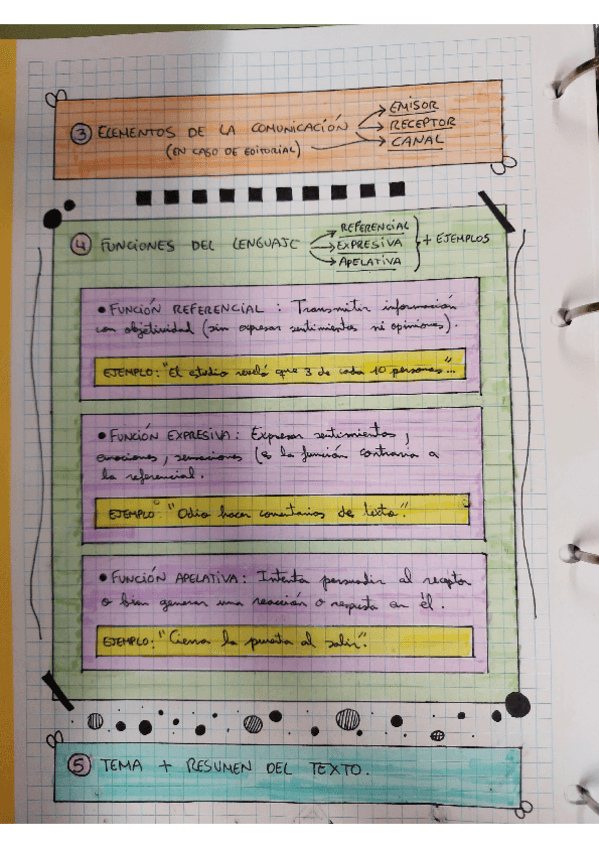 ③ ELEMENTOS DE LA COMUNICACIÓN → EMISOR
→ RECEPTOR
(EN CASO DE EDITORIAL) → CANAL
④ FUNCIONES DEL LENGUAJE → REFERENCIAL
→ EXPRESIVA + EJEMPLOS
→ APELATIVA
• FUNCIÓN REFERENCIAL: Transmitir información
con objetividad (sin expresar sentimientos ni opiniones).
EJEMPLO: "El estudio reveló que 3 de cada 10 personas"...
• FUNCIÓN EXPRESIVA: Expresar sentimientos,
emociones, sensaciones (es la función contraria a
la referencial.
EJEMPLO: "Odio hacer comentarios de texto".
• FUNCIÓN APELATIVA: Intenta persuadir al receptor
o bien generar una reacción o respuesta en él.
EJEMPLO: "Cierra la puerta al salir".
⑤ TEMA + RESUMEN DEL TEXTO.